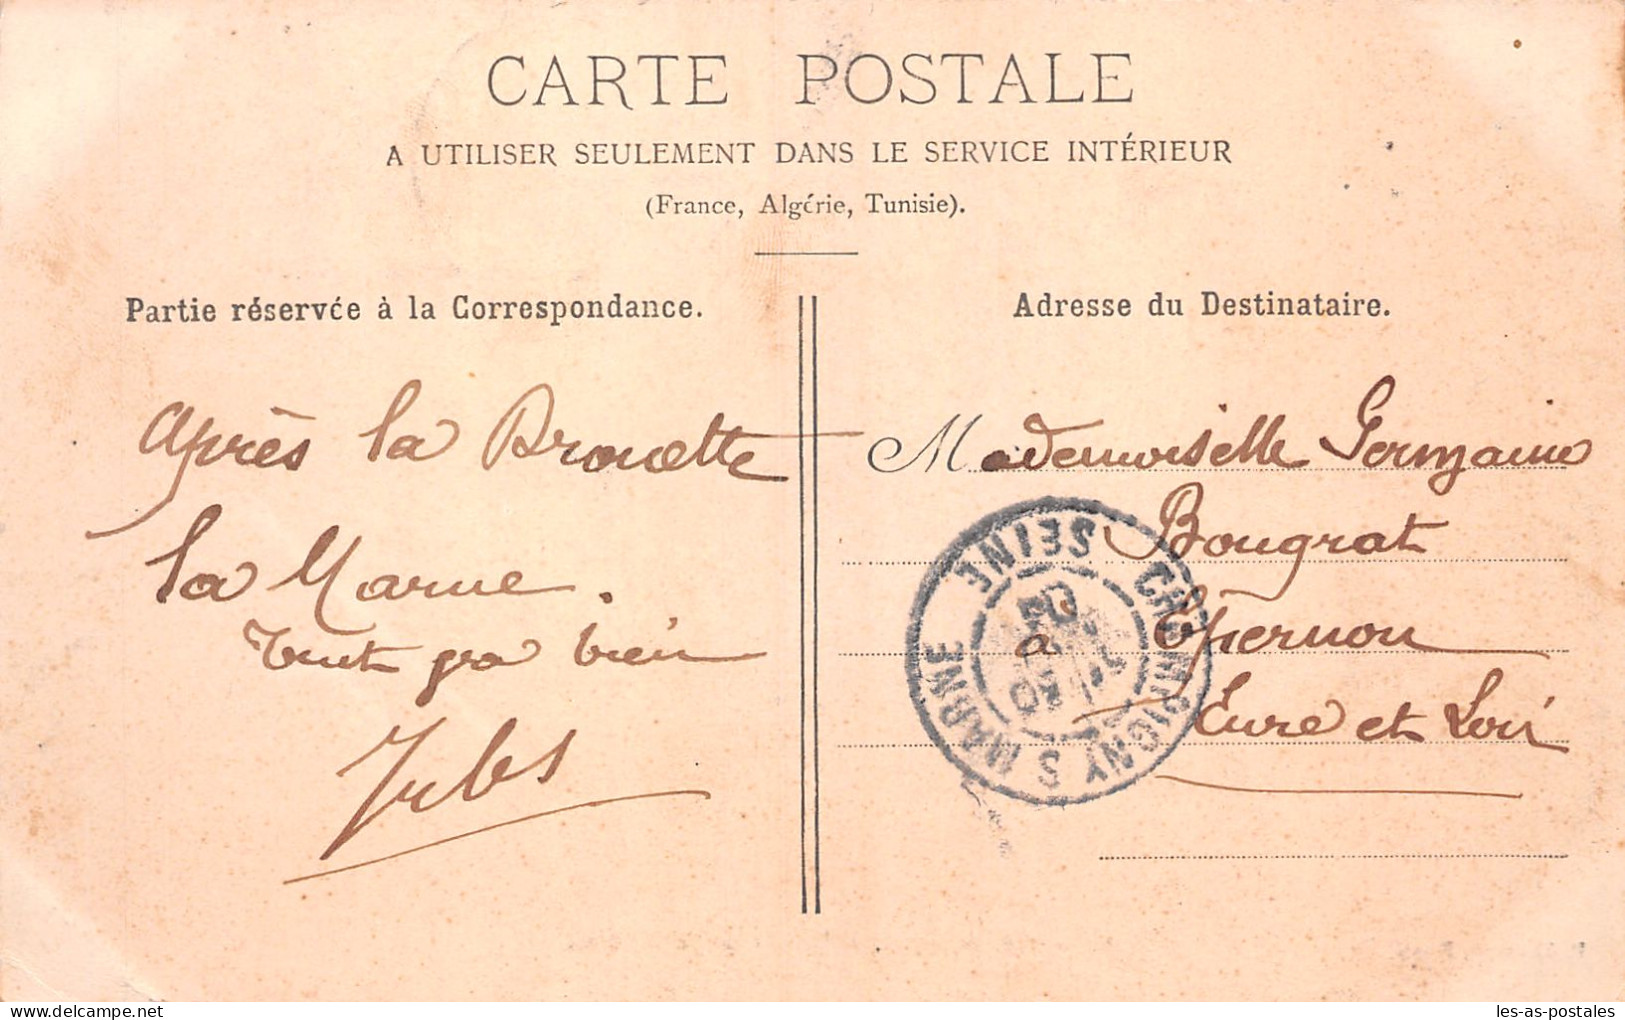 CARTE POSTALE
A UTILISER SEULEMENT DANS LE SERVICE INTÉRIEUR
(France, Algérie, Tunisie).
Partie réservée à la Correspondance.
Après la Brouette
la Marne.
Tout ga bien
Adresse du Destinataire.
Mademoiselle Germaine
Bougrat
a Epernon
Eure et Loir
CHAMPIGNY S MARNE
SEINE
04
les-as-postales